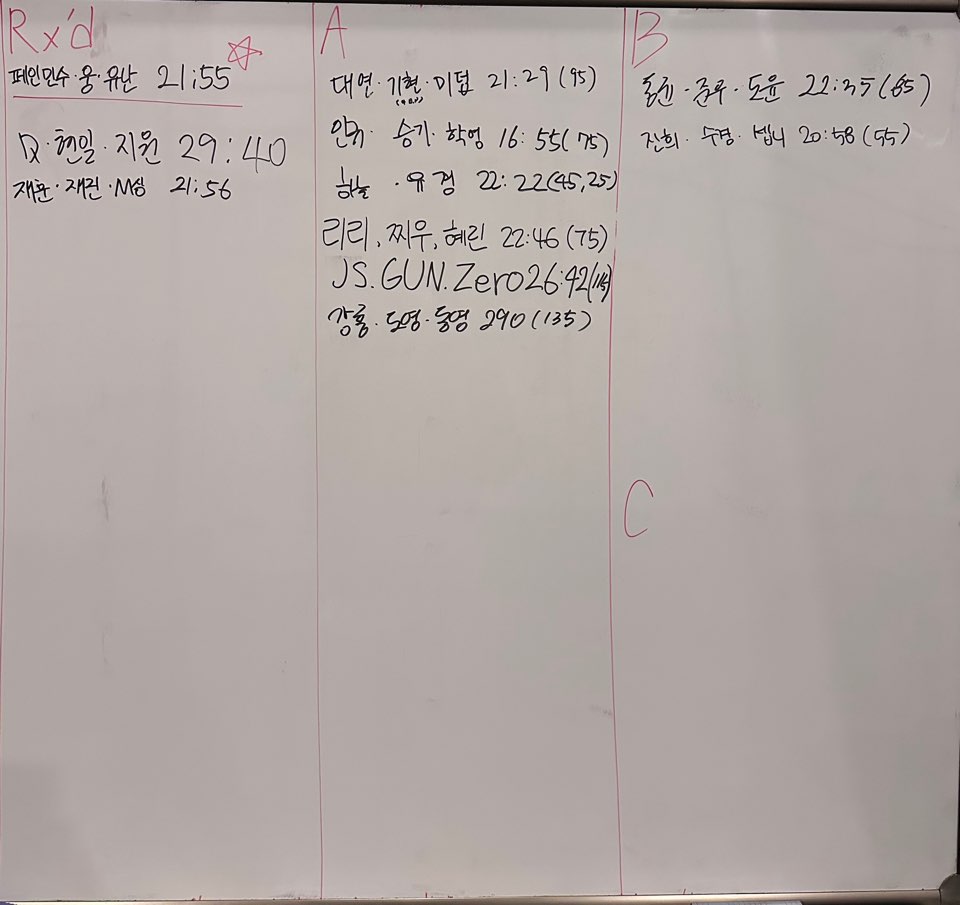 Rx'd
페인민수·웅·유난 21:55
현일·지원 29:40
재훈·재진·M심 21:56
A
대연·기현·미덥 21:29 (95)
승기·학영 16:55 (75)
하늘·유경 22:22 (45, 25)
리리, 찌우, 혜린 22:46 (75)
JS. GUN. Zero 26:42 (115)
강흥·도영·동영 290 (135)
B
도윤 22:35 (65)
진희·수경· 20:58 (55)
C